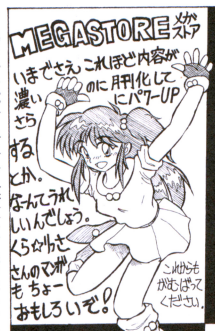 MEGASTORE メガストア
いまでさえこれほど内容が
濃いのに月刊化して
さらにパワーUP
する
とか。
なんてうれ
しいんでしょう。
さんのマンガ
もちょー
おもしろいぞ!
これからも
がむばって
ください。